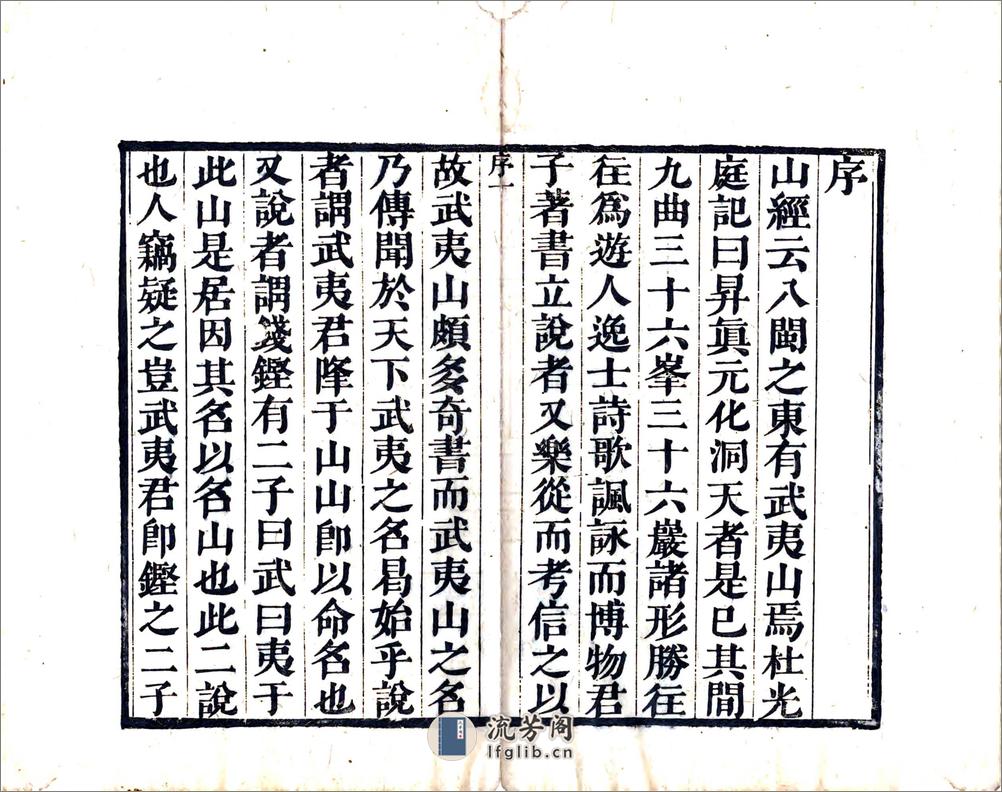 序
山經云八閩之東有武夷山焉杜光
庭記曰昇眞元化洞天者是已其間
九曲三十六峯三十六巖諸形勝往
徃爲遊人逸士詩歌諷詠而博物君
子著書立說者又樂從而考信之以
序一
故武夷山頗多奇書而武夷山之名
乃傳聞於天下武夷之名曷始乎說
者謂武夷君降于山山卽以命名也
又說者謂籛鏗有二子曰武曰夷于
此山是居因其名以名山也此二說
也人竊疑之豈武夷君卽鏗之二子
流芳阁
lfglib.cn